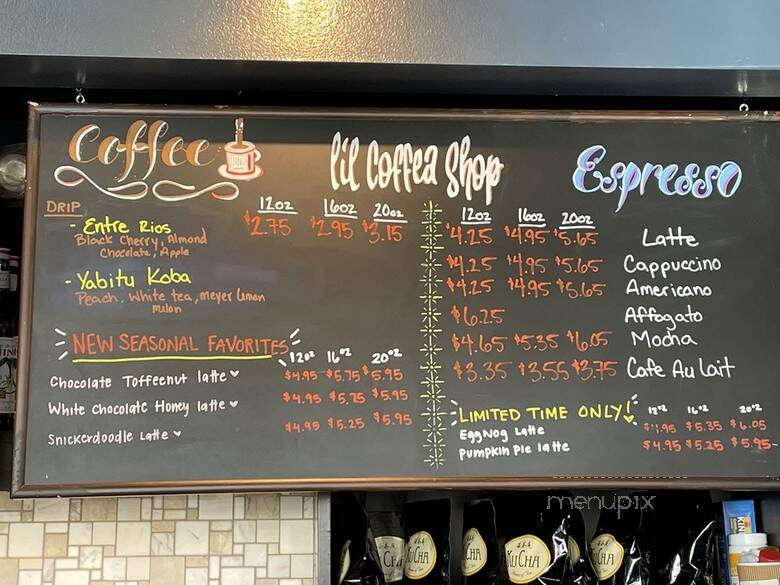 Coffee
lil Coffea Shop
Espresso
DRIP
12oz 16oz 20oz
- Entre Rios $2.75 $2.95 $3.15
Black Cherry, Almond
Chocolate, Apple
- Yabitu Koba
Peach, White tea, meyer lemon
melon
NEW SEASONAL FAVORITES
12oz 16oz 20oz
Chocolate Toffeenut latte $4.95 $5.75 $5.95
White Chocolate Honey latte $4.95 $5.75 $5.95
Snickerdoodle Latte $4.95 $5.25 $5.95
12oz 16oz 20oz
$4.25 $4.95 $5.65 Latte
$4.25 $4.95 $5.65 Cappuccino
$4.25 $4.95 $5.65 Americano
$6.25 Affogato
$4.65 $5.35 $6.05 Mocha
$3.35 $3.55 $3.75 Cafe Au Lait
LIMITED TIME ONLY!
12oz 16oz 20oz
EggNog Latte $5.35 $6.05
Pumpkin Pie latte $4.95 $5.25 $5.95
menupix
KUCHA
CHA
KUCHA
KUCHA